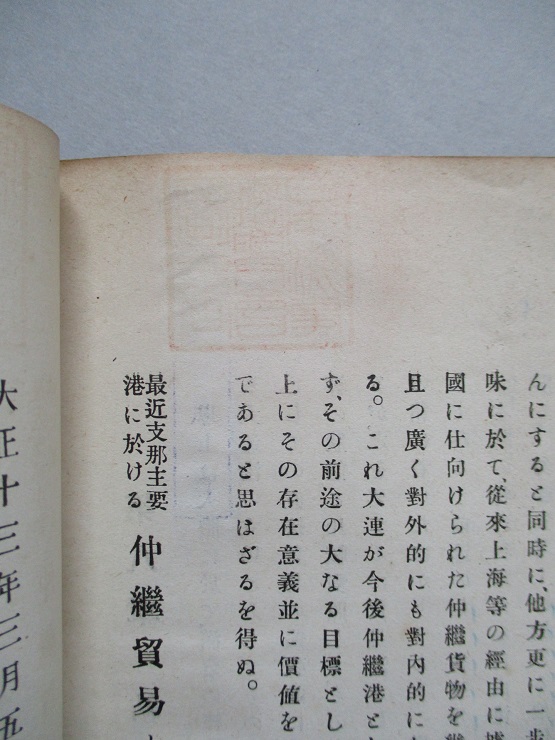 んにすると同時に、他方更に一步
味に於て、從來上海等の經由に
國に仕向けられた仲繼貨物を
且つ廣く對外的にも對內的に
る。これ大連が今後仲繼港と
ず、その前途の大なる目標とし
上にその存在意義並に價値を
であると思はざるを得ぬ。
最近支那主要
港に於ける
仲繼貿易
大正十三年三月五